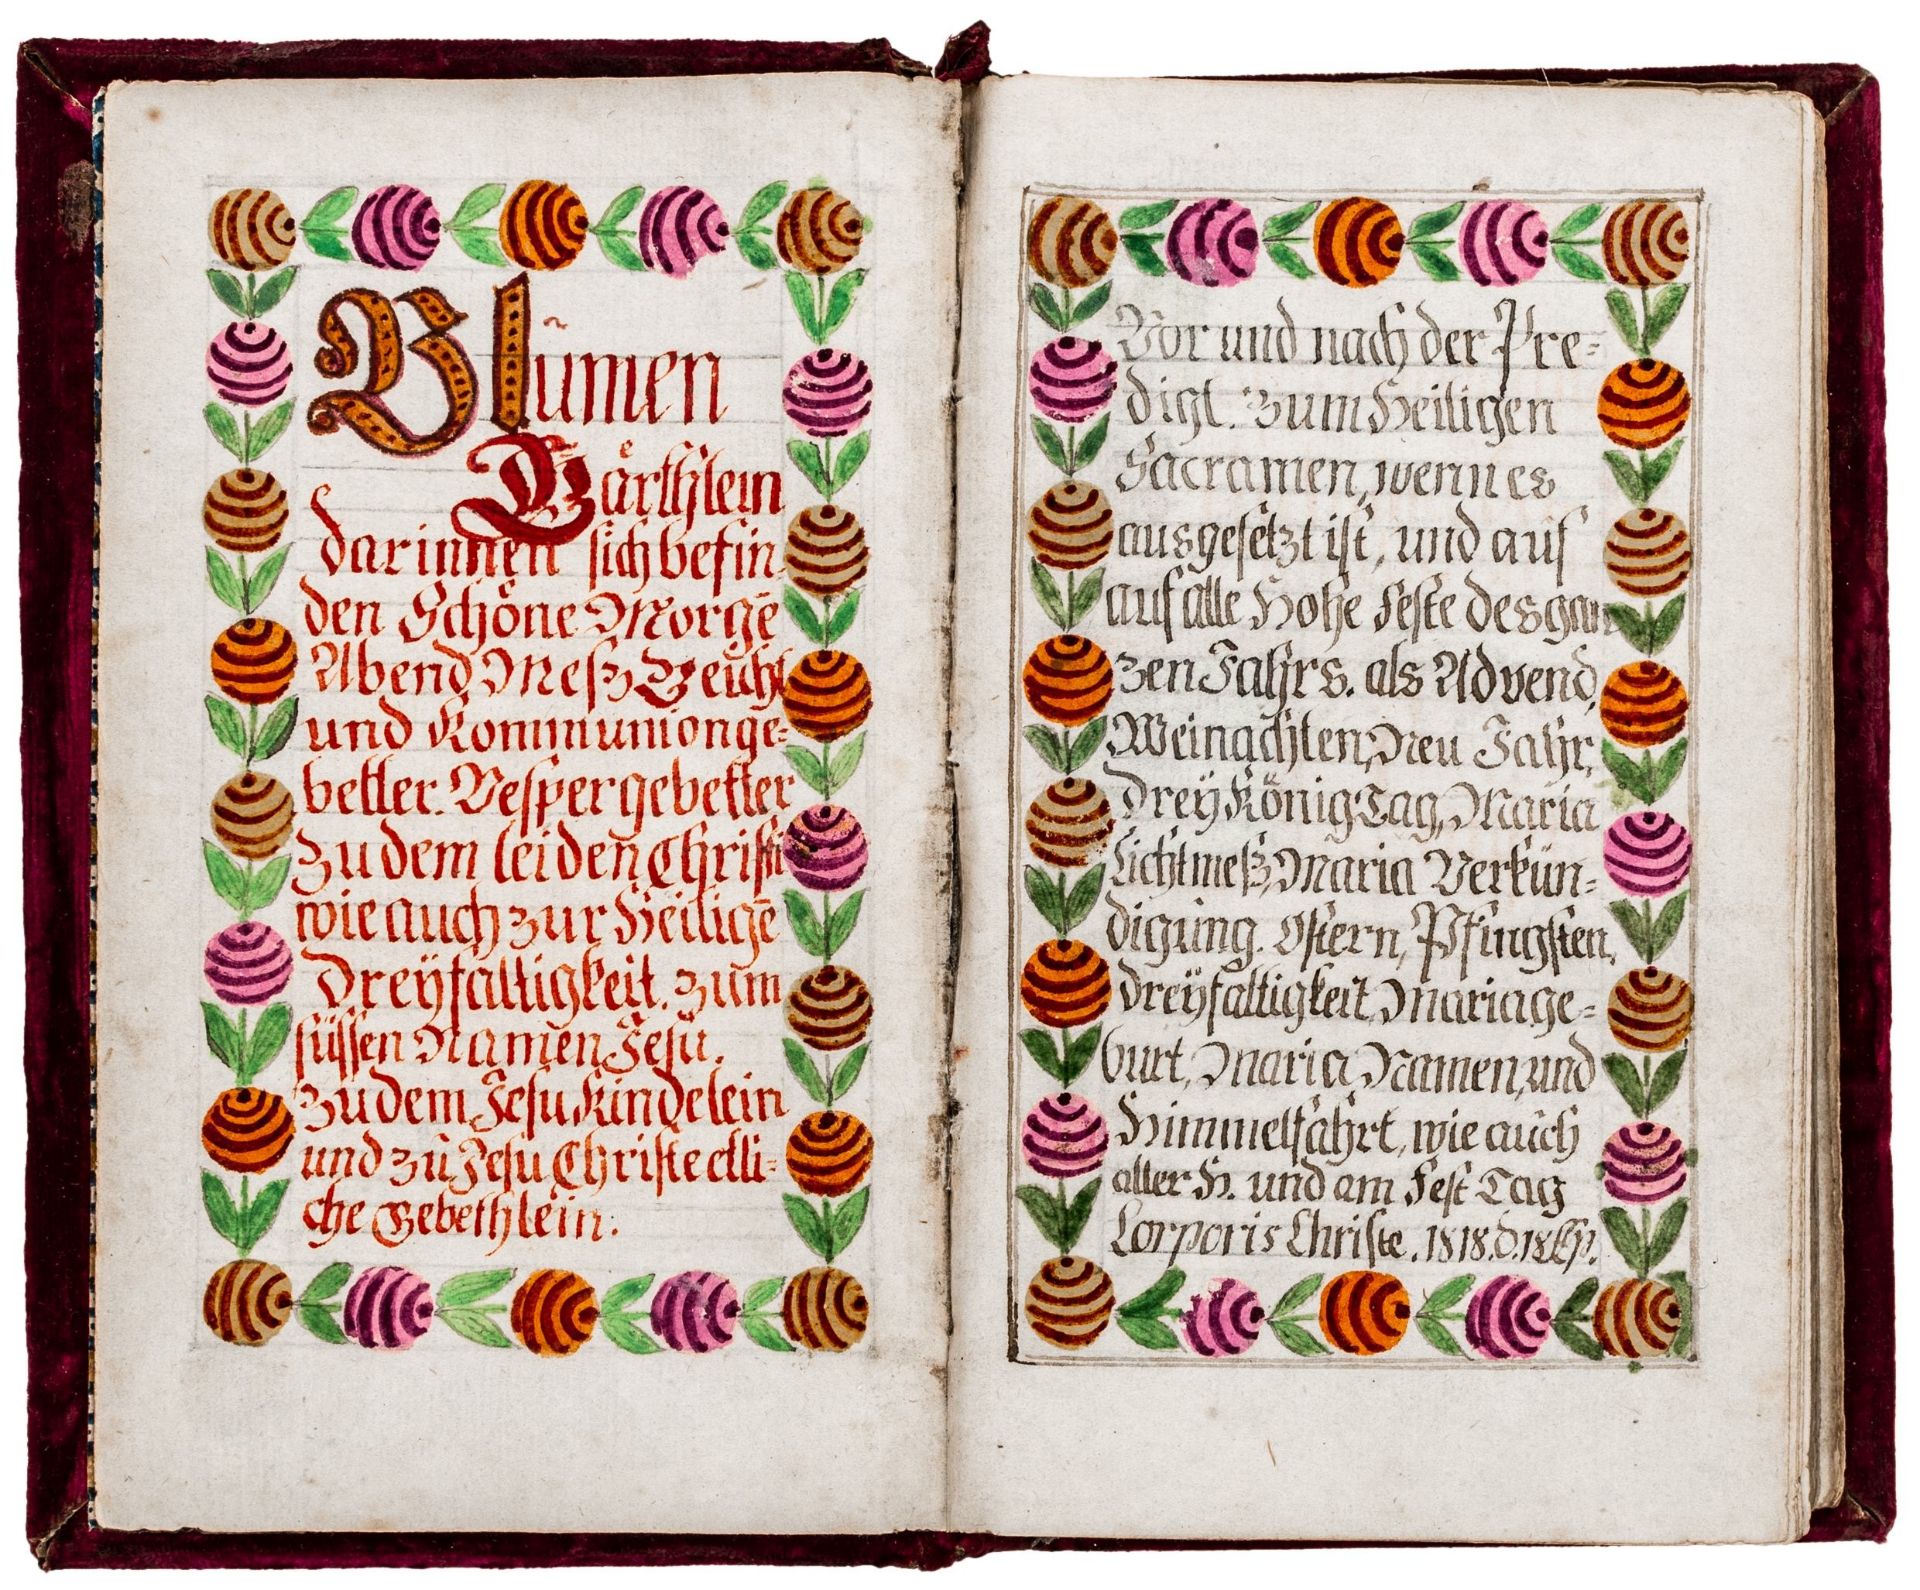 Blumen
Gärthlein
darinnen sich befin-
den Schöne Morgē
Abend, Mesz, Beucht
und Kommunionge-
better. Vespergebetter
zu dem leiden Christi
wie auch zur Heiligē
Dreÿfaltigkeit. zum
süssen Namen Jesu.
zu dem Jesu Kindelein
und zu Jesu Christe etli-
che Gebethlein.
Vor und nach der Pre-
digt. Zum Heiligen
Sacramen, wenn es
ausgesetzt ist, und auf
auf alle Hohe Feste des gan
zen Jahrs. als Advend,
Weinachten, Neu Jahr,
Dreÿ König Tag, Maria
Lichtmeß, Maria Verkün-
digung. Ostern, Pfingsten,
Dreÿfaltigkeit, Mariage-
burt, Maria Namen, und
Himmelfahrt, wie auch
aller H. und am Fest Tag
Corporis Christe. 1818. d. 18